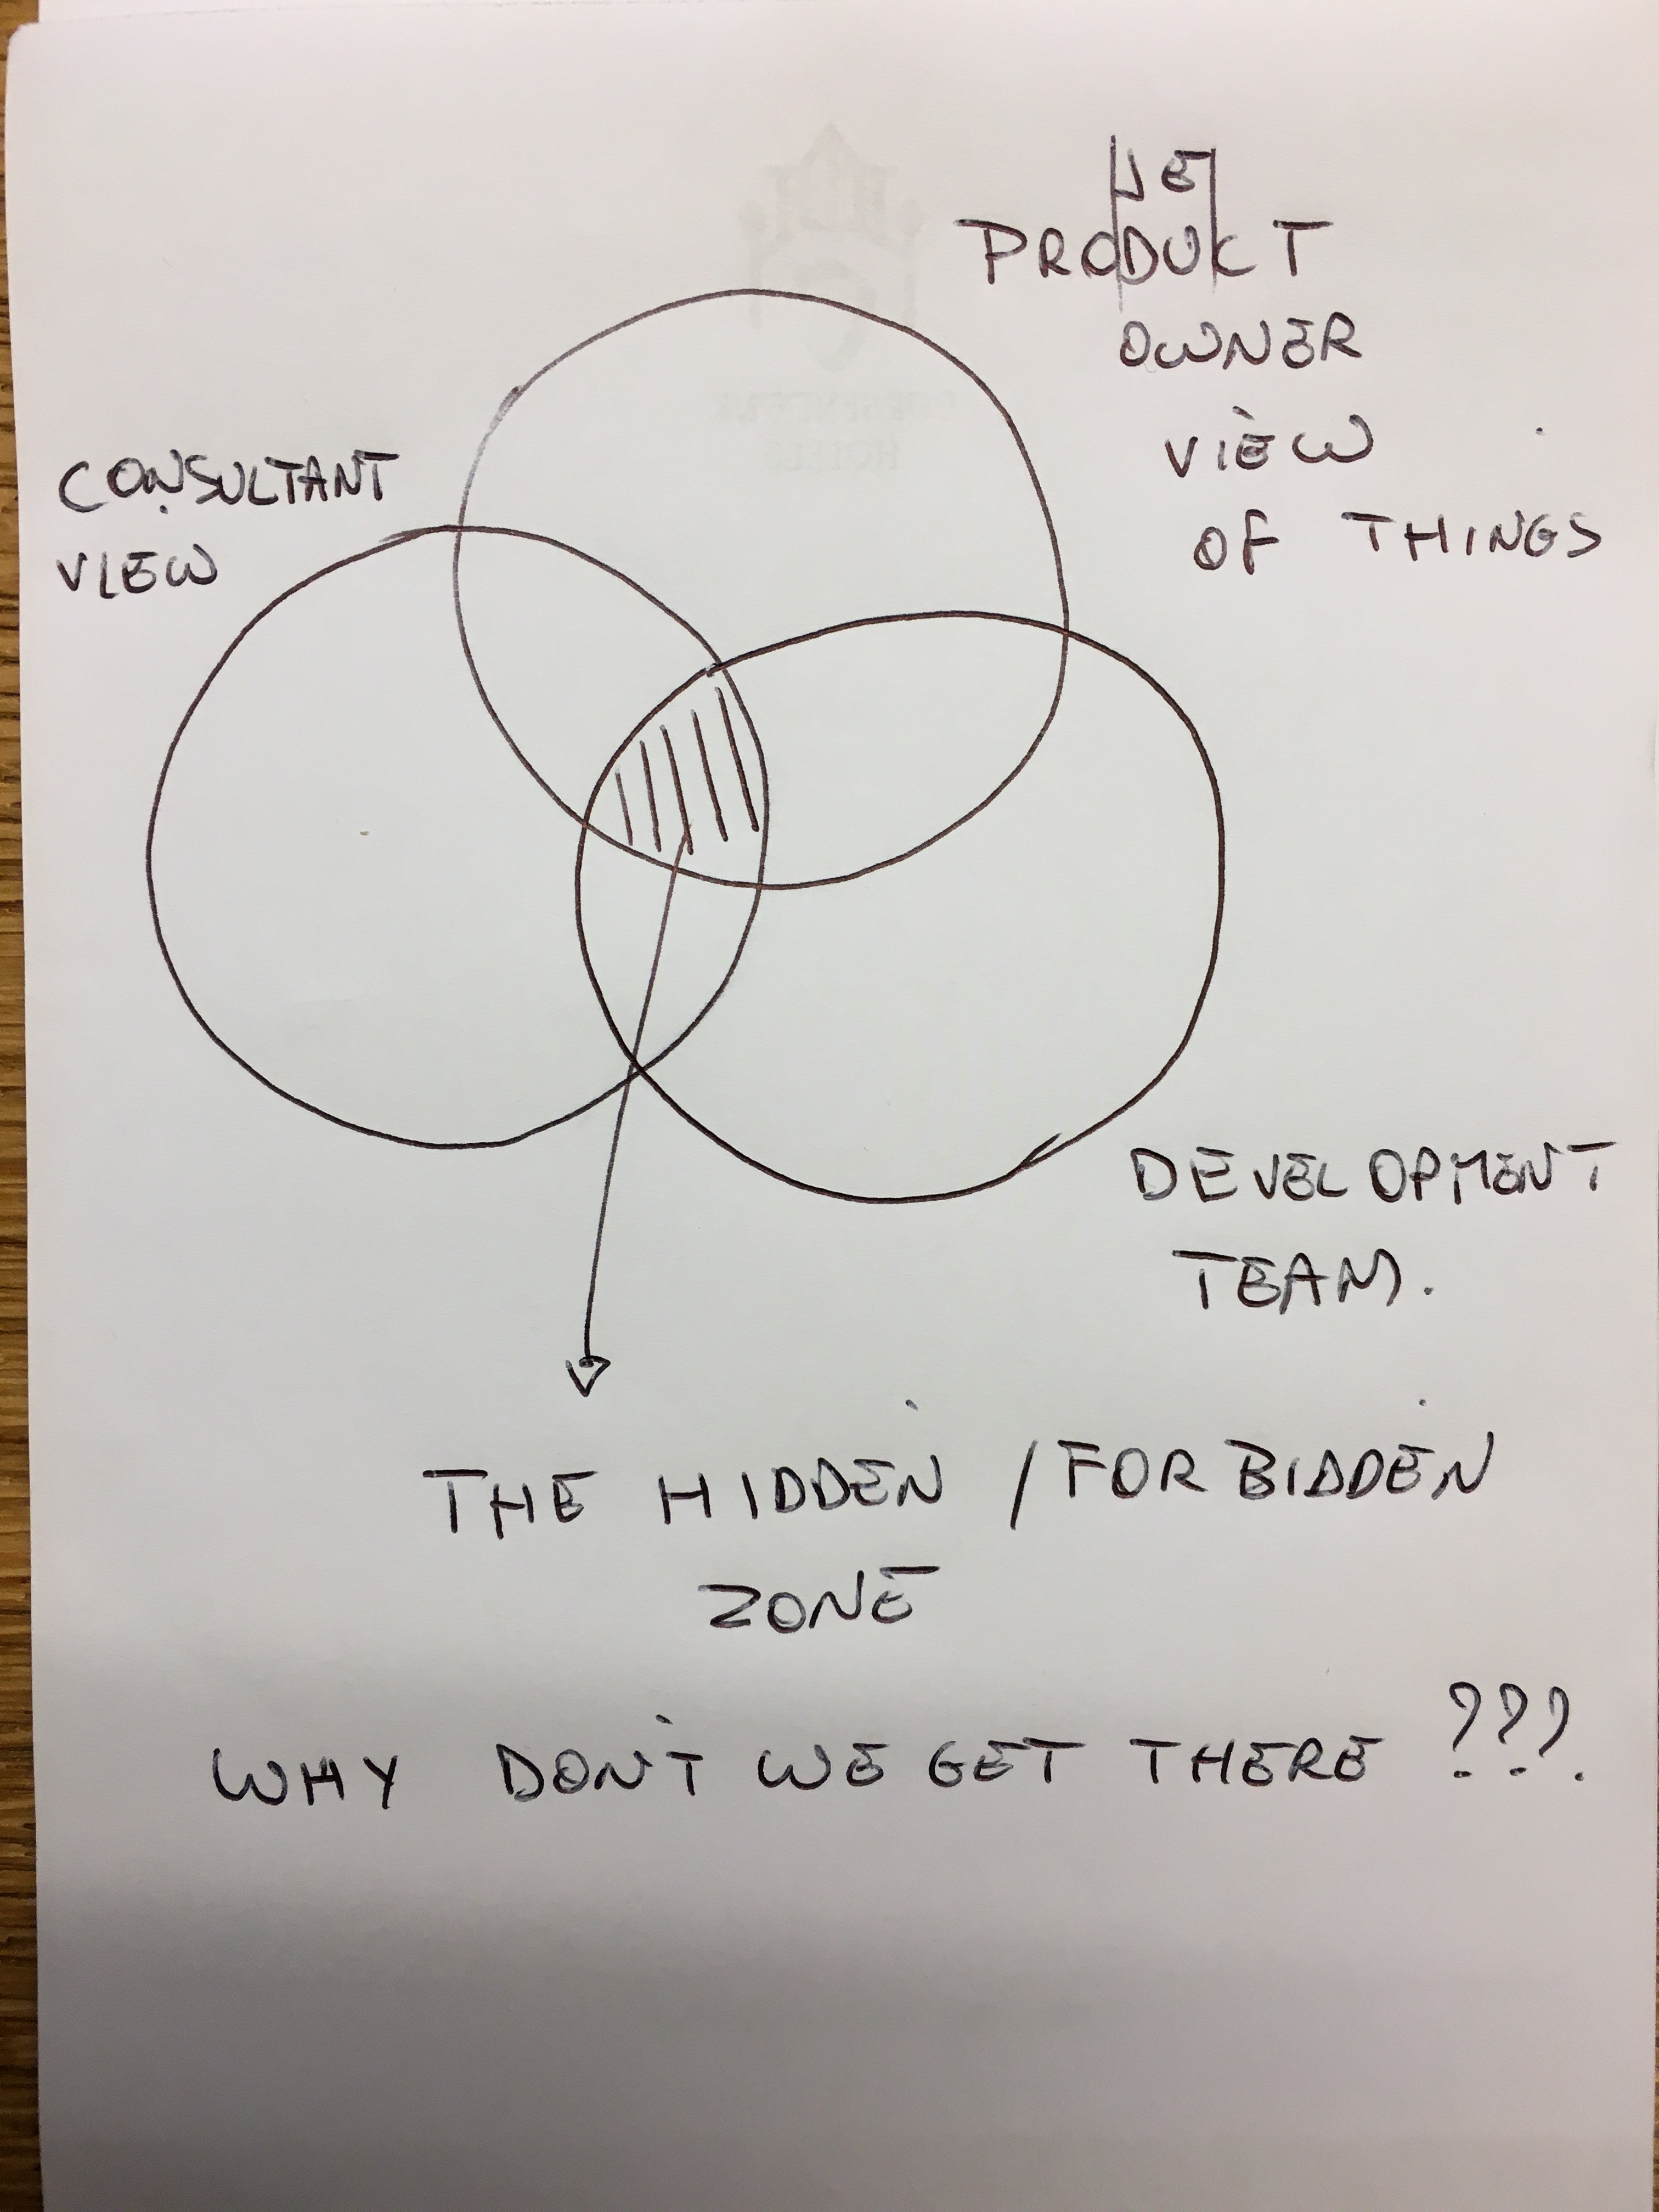 PRODUKT
OWNER
VIEW
OF THINGS
CONSULTANT
VIEW
DEVELOPMENT
TEAM.
THE HIDDEN / FORBIDDEN
ZONE
WHY DON'T WE GET THERE ???